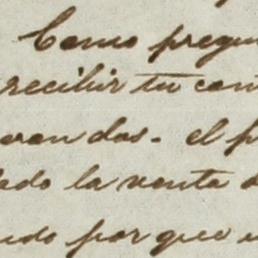 Como pregun
recibir tu con
aron dos. el p
dado la venta d
udo por que u